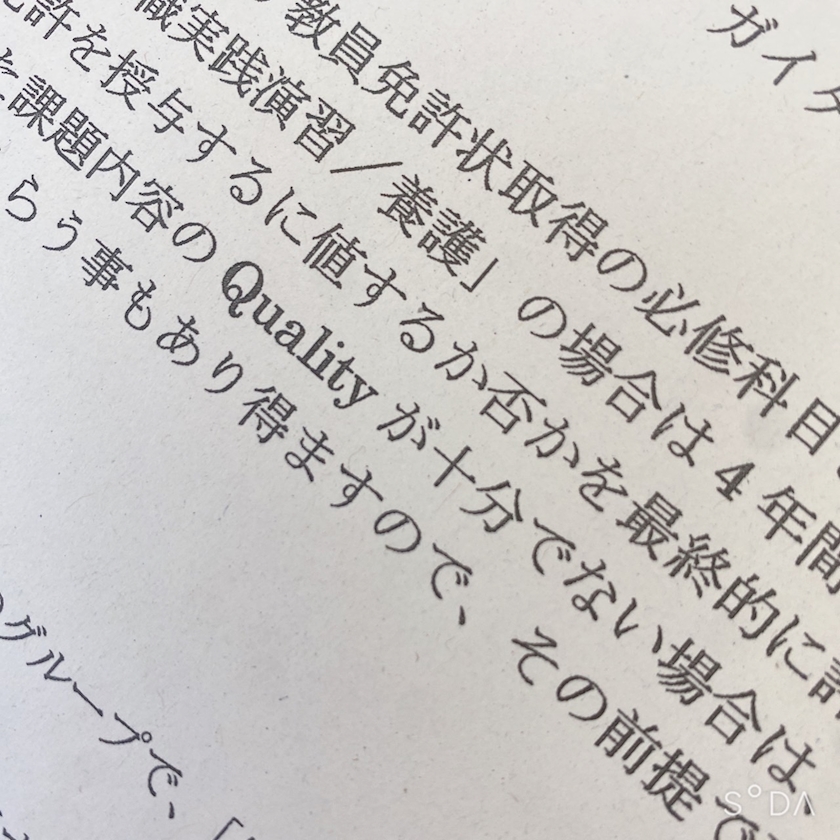 ガイダ
教員免許状取得の必修科目
職実践演習／養護」の場合は4年間
免許を授与するに値するか否かを最終的に
課題内容のQualityが十分でない場合は、
らう事もあり得ますので、その前提で
のグループで、「
SODA